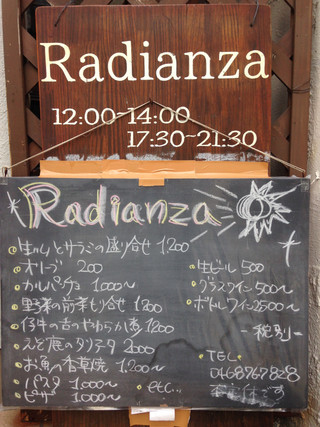 Radianza
12:00~14:00
17:30~21:30
Radianza
生ハムとサラミの盛り合せ 1200
オリーブ 200
カルパッチョ 1000~
野菜の前菜もり合せ 1200
仔牛の舌のやわらか煮 1200
えぞ鹿のタリアータ 2000
お魚の香草焼 1,200~
パスタ 1,000~
ピザ 1,000~
etc...
生ビール 500
グラスワイン 500~
ボトルワイン 2500~
-税別-
TEL
0468767828
です